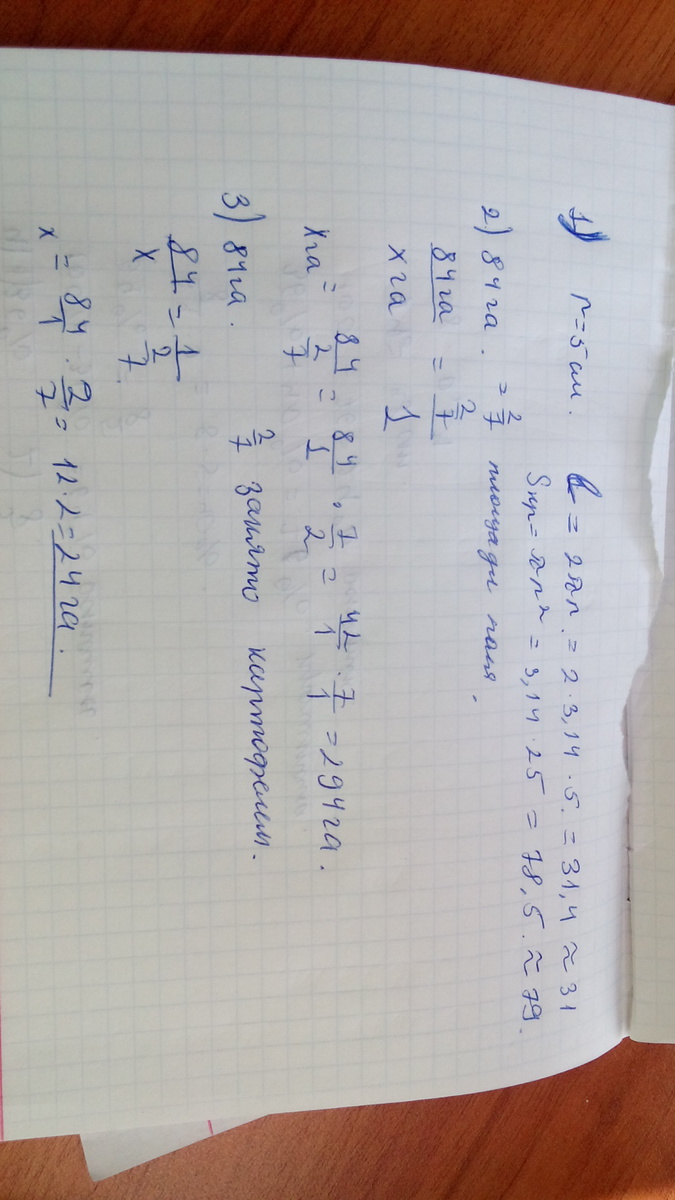 1) r=5 см. C = 2πr. = 2·3,14·5. = 31,4 ≈ 31
Sкр= πr² = 3,14·25 = 78,5. ≈ 79.
2) 84га. = 2/7 площади поля.
84га/xга = 2/7/1
xга = 84/2/7 = 84/1 · 7/2 = 42/1 · 7/1 = 294га.
3) 84га. 2/7 занято картофелем.
84/x = 1/2/7.
x = 84/1 · 2/7 = 12·2 = 24га.